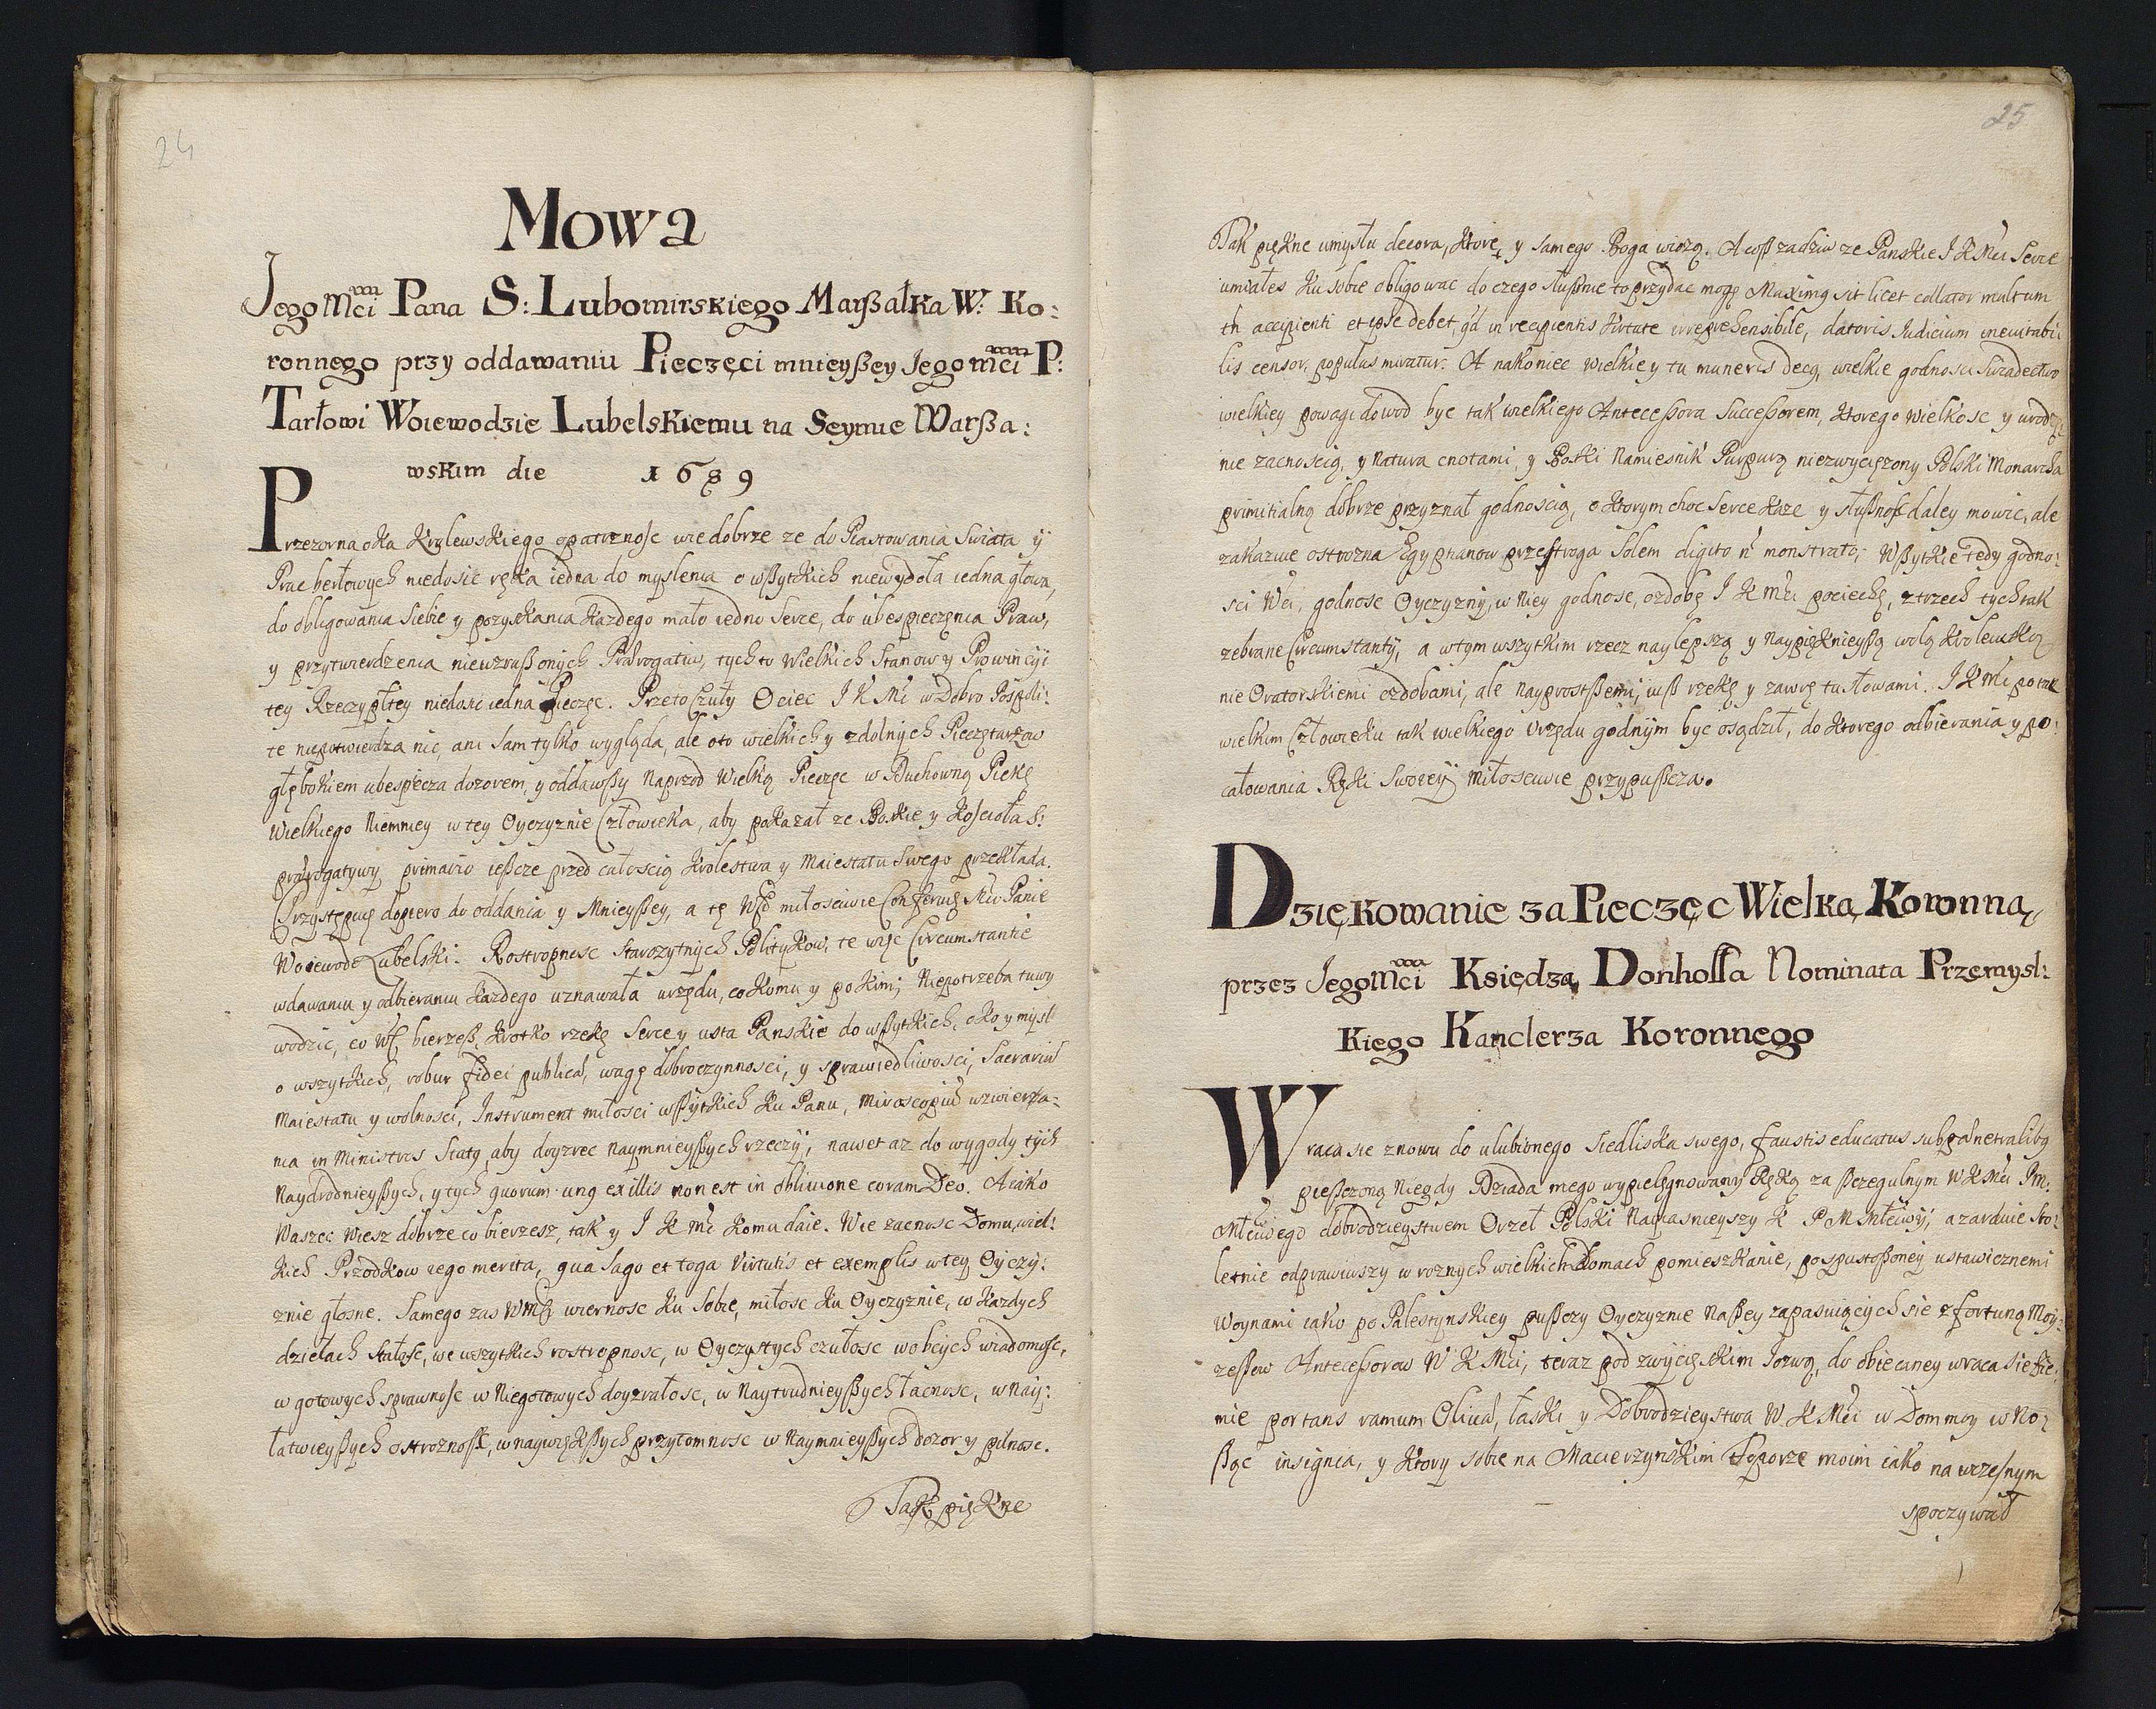 24
Mowa
Jego Mci Pana S: Lubomirskiego Marßałka W. Ko:
ronnego przy oddawaniu Pieczęci mnieyßey Jego mci P:
Tarłowi Woiewodzie Lubelskiemu na Seymie Warßa:
wskim die 1689
Przezorna oka Krolewskiego opatrznosc wie dobrze ze do Piastowania Swiata y
Prac berłowych niedosic ręka iedna do myslenia o wßytkich niewydoła iedna głowa,
do obligowania Siebie y pozyskania kazdego mało iedno Serce, do ubespieczęnia Praw,
y przytwierdzenia niewzrußonych Prærogatiw, tych to Wielkich Stanow y Prowincyi
tey Rzeczypltey niedosic iedna Pieczęc. Przeto Czuły Ociec J K Mc w Dobro Pospoli:
te niepotwierdza nic, ani Sam tylko wygląda, ale oto wielkich y zdolnych Pieczętarzow
głębokiem ubespiecza dozorem, y oddawßy Naprzod Wielką Pieczęc w Duchowną Piekę
Wielkiego Niemniey w tey Oyczyznie Człowieka, aby pokazał ze Boskie y Koscioła S:
prærogatywy primario ießcze przed całoscią Krolestwa y Maiestatu Swego przekłada.
Przystępuię dopiero do oddania y Mnieyßey, a tę miłosciwie Conferuię Mci Panie
Woiewodo Lubelski. Rostropnosc Starozytnych Politykow, te więc Circumstantie
w dawaniu y odbieraniu kazdego uznawała urzędu, co komu y po kim; Niepotrzeba tu wy
wodzic, co bierzeß, krotko rzekę Serce y usta Panskie do wßytkich, oko y mysl
o wszytkich, robur fidei publicæ, wagę dobroczynnosci, y sprawiedliwosci, Sacrariū
Maiestatu y wolnosci, Instrument miłosci wßytkich ku Panu, Miroscopiū uzwierza-
nia in Ministros Statq, aby doyzrec naymnieyßych rzeczy, nawet az do wygody tych
Naydrodnieyßych, y tych quorum ung ex illis non est in oblivione coram Deo. A iako
Waszec wiesz dobrze co bierzesz, tak y J K Mc komu daie. Wie zacnosc Domu, wiel:
kich Przodkow iego merita, qua Sago et toga Virtutis et exemplis w tey Oyczy:
znie głosne. Samego zas wiernosc ku Sobie, miłosc ku Oyczyznie, w kazdych
dziełach Stałosc, we wszytkich rostropnosc, w Oyczystych czułosc w obcych wiadomosc,
w gotowych sprawnosc w Niegotowych doyzrałosc, w Naytrudnieyßych łacnosc, w Nay:
łatwieyßych ostroznosc, w naywiększych przytomnosc w Naymnieyßych dozor y pilnosc.
Tak piękne
25
Tak piękne umysłu decora, ktore y Samego Boga wiążą. A wß zadziw ze Panskie J K Mci Serce
umiałes ku sobie obligowac do czego słußnie to przydac mogę Maximq sit licet collator multum
tn accipienti et ipse debet, qd in recipientis virtute irreprehensibile, datoris Iudicium inevitabi:
lis censor, populus miratur. A nakoniec wielkie y tu muneris decq, wielkie godnosci Swiadectwo
wielkiey powagi dowod byc tak wielkiego Anteceßora Succeßorem, ktorego wielkosc y urodze
nie zacnoscią, y Natura cnotami, y Boski Namiesnik Purpurą niezwyciężony Polski Monarcha
primitialną dobrze przyznał godnoscią, o ktorym choc Serce kaze y słußnosc daley mowic, ale
zakazuie ostrozna Egyptianow przestroga Solem digito ñ monstrato; Wßytkie tedy godno:
sci Wci, godnosc Oyczyzny, w Niey godnosc, ozdobę J K Mci pociechę, z trzech tych tak
zebrane Circumstantij, a w tym wszytkim rzecz naylepszą y Naypięknieyßą wolą Krolewską
nie Oratorskiemi ozdobami, ale nayprostßemi, iuß rzekę y zawrę tu słowami. J K Mc po tak
wielkim Człowieku tak wielkiego Urzędu godnym byc osądził, do ktorego odbierania y po:
całowania Ręki Swoiey miłosciwie przypußcza.
Dziękowanie za Pieczęc Wielką Koronną
przez Jego Mci Księdza Donhoffa Nominata Przemysl:
kiego Kanclerza Koronnego
Wraca sie znowu do ulubionego Siedliska swego, faustis educatus sub penetralibq
pießczoną Niegdy Dziada mego wypielęgnowany Ręką za ßczegulnym W K Mci P m:
Młciwego dobrodzieystwem Orzeł Polski Nayiasnieyszy K P M Młciwy, a zarduie sto:
letnie odprawiwszy w roznych wielkich Domach pomieszkanie, po spustoßoney ustawicznemi
Woynami iako po Palestynskiey pußczy Oyczyznie Naßey zapasuiących sie z fortuną Moy:
zeßow Anteceßorow W K Mci, teraz pod zwycięskim Iozuą, do obiecaney wraca sie Zie:
mie portans ramum Olivæ, łaski y Dobrodzieystwa W K Mci w Dom moy wno:
ßąc insignia, y ktory sobie na Macierzynskim Toporze moim iako na wczesnym
spoczywał